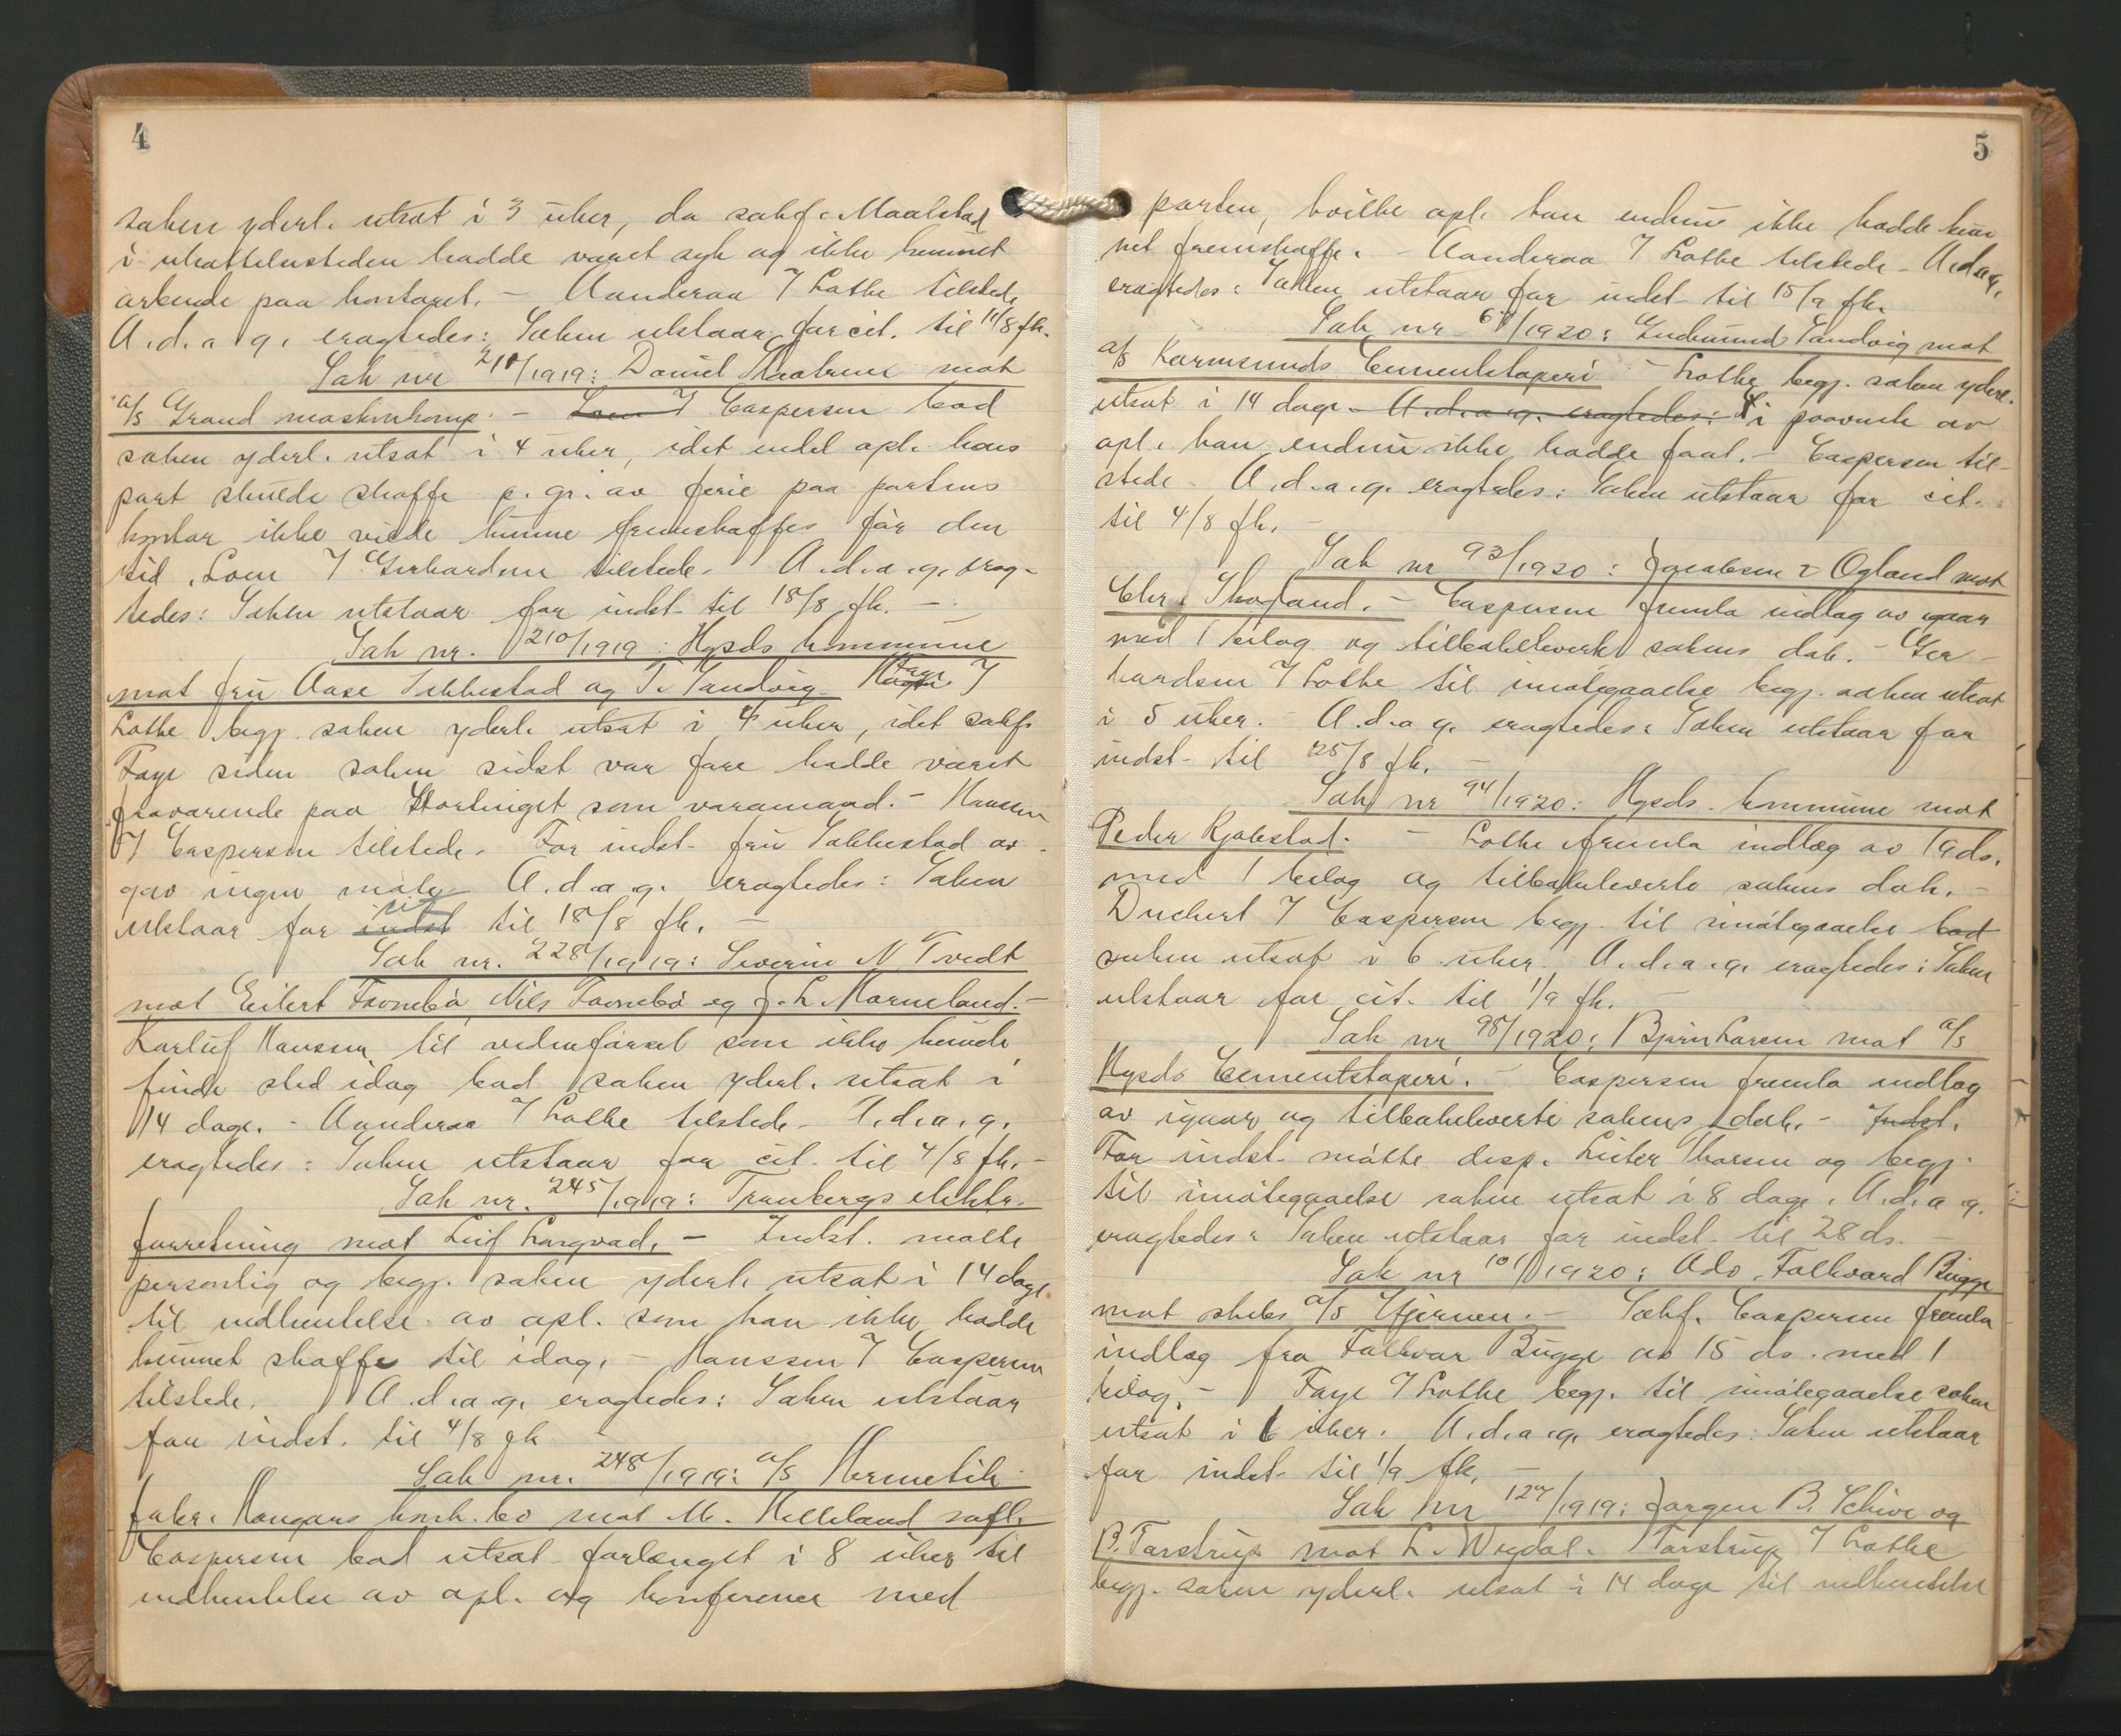 4
saken yderl. utsat i 3 uker, da sakf. Maalstad
i utsættelsestiden hadde været syk og ikke kunnet
arbeide paa kontoret. – Aanderaa f Lothe tilstede
A. d. a g. eragtedes: Saken utstaar for cit. til 11/8 fk.
Sak nr 210/1919: Daniel mot
a/s Grand maskinkomp. – Loen f Caspersen bad
saken yderl. utsat i 4 uker, idet endel opl. hans
part skulde skaffe p. gr. av ferie paa partens
kontor ikke vilde kunne fremskaffes før den
tid. Loen f Gerhardsen tilstede. A. d. a. g. erag-
tedes: Saken utstaar for indst. til 18/8 fk. –
Sak nr. 210/1919: Hgsds kommune
mot fru Aase Sakkestad og T. Sandvig. Faye f
Lothe begj. saken yderl. utsat i 4 uker, idet sakf.
Faye siden saken sidst var fore hadde været
fraværende paa Stortinget som varamand. – Hanssen
f Caspersen tilstede. For indst. fru Sakkestad av-
gav ingen møte. A. d. a. g. eragtedes: Saken
utstaar for indst cit til 18/8 fk. –
Sak nr. 228/1919: Severin N. Tvedt
mot Eilert Tvonebø, Nils Tvonebø og J. L. Marneland. –
Karluf Hanssen til vidneførsel som ikke kunde
finde sted idag bad saken yderl. utsat i
14 dage. – Aanderaa f Lothe tilstede – A. d. a. g.
eragtedes: Saken utstaar for cit. til 4/8 fk. –
Sak nr. 245/1919: Tranbergs elektr.
forretning mot Leif Langvad. – Indst. møtte
personlig og begj. saken yderl. utsat i 14 dage
til indhentelse av opl. som han ikke hadde
kunnet skaffe til idag. – Hanssen f Caspersen
tilstede. A. d. a. g. eragtedes: Saken utstaar
for indst. til 4/8 fk
Sak nr. 248/1919: a/s Hermetik-
fabr. Haugars konk. bo mot M. Helleland sakf.
Caspersen bad utsat forlænget i 8 uker til
indhentelse av opl. og konferance med
5
parten, hvilke opl. han endnu ikke hadde kun
net fremskaffe. – Aanderaa f Lothe tilstede – A. d. a g.
eragtedes: Saken utstaar for indst. til 15/9 fk.
Sak nr 61/1920: Gudmund Sandvig mot
a/s Karmsunds Cementstøperi – Lothe begj. saken yderl.
utsat i 14 dage. A. d. a g. eragtedes: S i paavente av
opl. han endnu ikke hadde faat. – Caspersen til-
stede. A. d. a. g. eragtedes: Saken utstaar for cit.
til 4/8 fk. –
Sak nr 93/1920: Jacobsen & Øgland mot
Chr. Skogland. – Caspersen fremla indlæg av igaar
med 1 bilag og tilbakeleverte sakens dok. – Ger-
hardsen f Lothe til imøtegaaelse begj. saken utsat
i 5 uker. – A. d. a g. eragtedes: Saken utstaar for
indst. til 25/8 fk. –
Sak nr 94/1920: Hgsds. kommune mot
Peder Kjøbstad. – Lothe fremla indlæg av 19 ds.
med 1 bilag og tilbakeleverte sakens dok. –
Duckert f Caspersen begj. til imøtegaaelse bad
saken utsat i 6 uker. A. d. a. g. eragtedes: Saken
utstaar for cit. til 1/9 fk. –
Sak nr 98/1920: Bjørn Larsen mot a/s
Hgsds Cementstøperi. – Caspersen fremla indlæg
av igaar og tilbakeleverte sakens dok. – Indst.
For indst. møtte disp. Thorsen og begj.
til imøtegaaelse saken utsat i 8 dage. A. d. a g.
eragtedes: Saken utstaar for indst. til 28 ds. –
Sak nr 101/1920: Adv. Falkvard Bugge
mot skibs a/s Stjernen. – Sakf. Caspersen fremla
indlæg fra Falkvar Bugge av 15 ds. med 1
bilag. – Faye f Lothe begj. til imøtegaaelse saken
utsat i 6 uker. A. d. a g. eragtedes: Saken utstaar
for indst. til 1/9 fk. –
Sak nr 127/1919: Jørgen B. Schive og
B. Tarstrup mot L. Wigdal. Tarstrup f Lothe
begj. saken yderl. utsat i 14 dage til indhentelse